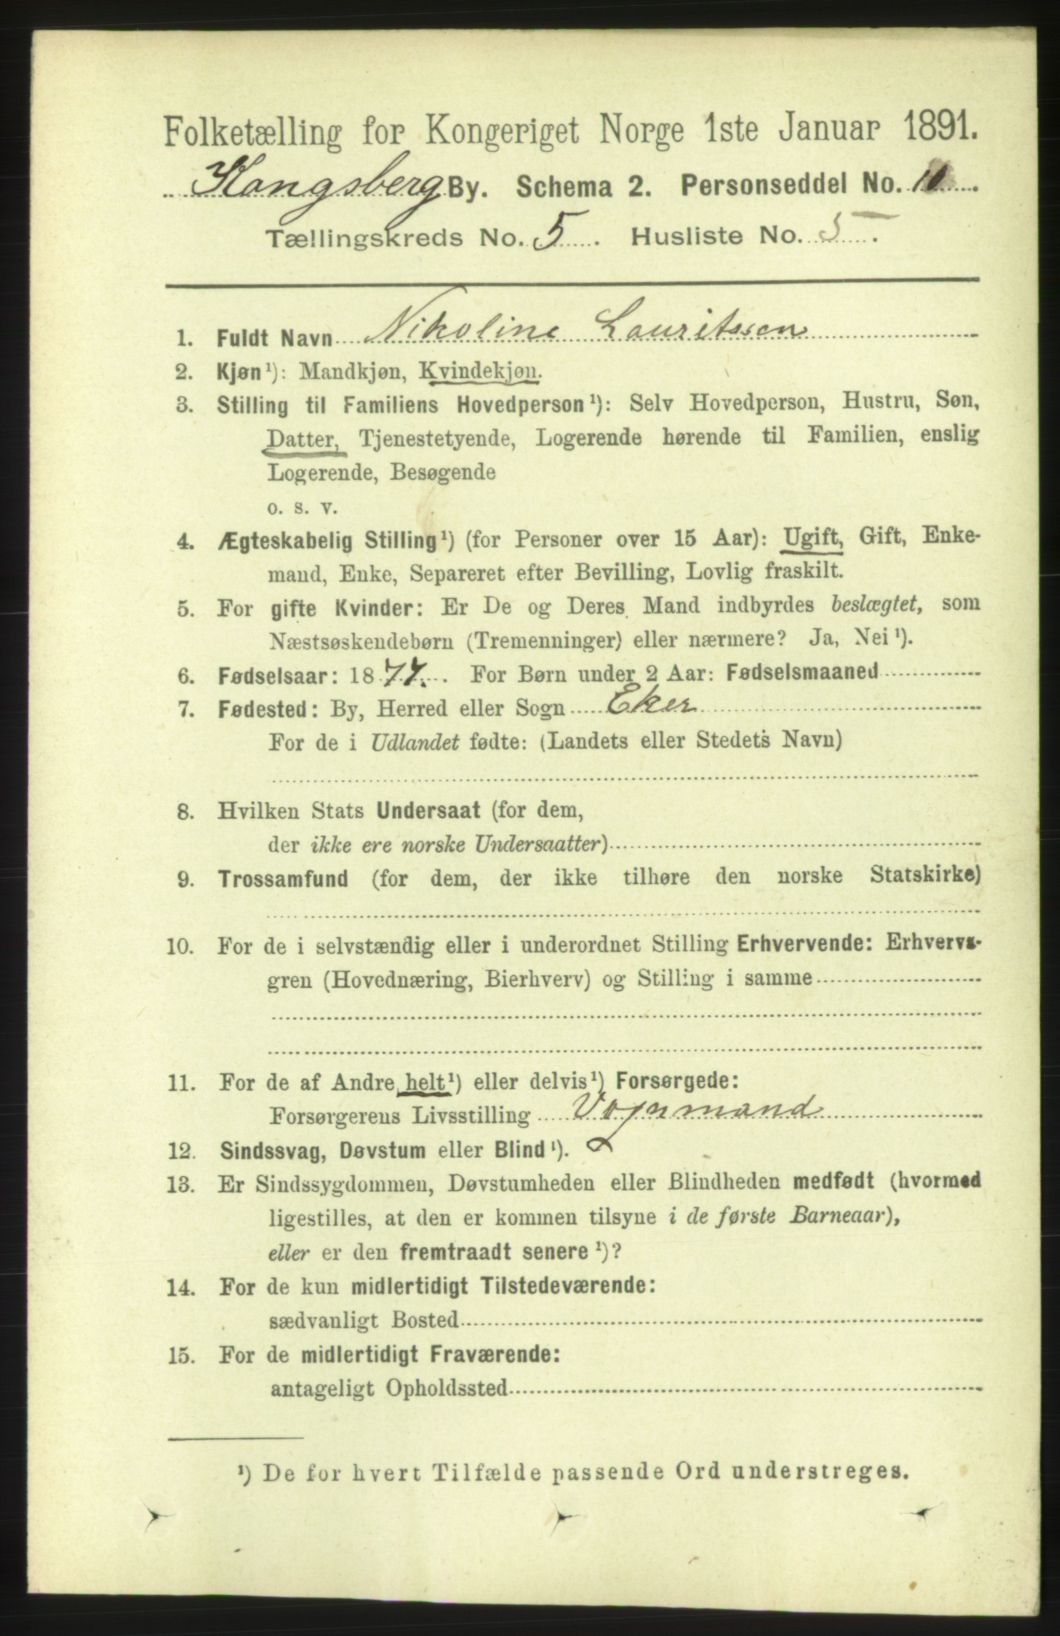 Folketælling for Kongeriget Norge 1ste Januar 1891.
Kongsberg By. Schema 2. Personseddel No. 10.
Tællingskreds No. 5. Husliste No. 5.
1. Fuldt Navn Nikoline Lauritssen
2. Kjøn¹): Mandkjøn, Kvindekjøn.
3. Stilling til Familiens Hovedperson¹): Selv Hovedperson, Hustru, Søn,
Datter, Tjenestetyende, Logerende hørende til Familien, enslig
Logerende, Besøgende
o. s. v.
4. Ægteskabelig Stilling¹) (for Personer over 15 Aar): Ugift, Gift, Enke-
mand, Enke, Separeret efter Bevilling, Lovlig fraskilt.
5. For gifte Kvinder: Er De og Deres Mand indbyrdes beslægtet, som
Næstsøskendebørn (Tremenninger) eller nærmere? Ja, Nei¹).
6. Fødselsaar: 1877. For Børn under 2 Aar: Fødselsmaaned
7. Fødested: By, Herred eller Sogn Eker
For de i Udlandet fødte: (Landets eller Stedets Navn)
8. Hvilken Stats Undersaat (for dem,
der ikke ere norske Undersaatter)
9. Trossamfund (for dem, der ikke tilhøre den norske Statskirke)
10. For de i selvstændig eller i underordnet Stilling Erhvervende: Erhvervs-
gren (Hovednæring, Bierhverv) og Stilling i samme
11. For de af Andre helt¹) eller delvis¹) Forsørgede:
Forsørgerens Livsstilling Vognmand
12. Sindssvag, Døvstum eller Blind¹).
13. Er Sindssygdommen, Døvstumheden eller Blindheden medfødt (hvormed
ligestilles, at den er kommen tilsyne i de første Barneaar),
eller er den fremtraadt senere¹)?
14. For de kun midlertidigt Tilstedeværende:
sædvanligt Bosted
15. For de midlertidigt Fraværende:
antageligt Opholdssted
¹) De for hvert Tilfælde passende Ord understreges.